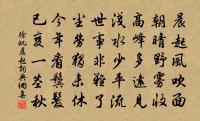 晨起風吹面
朝晴野霧收
高峰多遠見
淺水少平流
世事非難了
勞獨未休
今年看鬢髮
一莖秋
徐璣晨起詞典網書